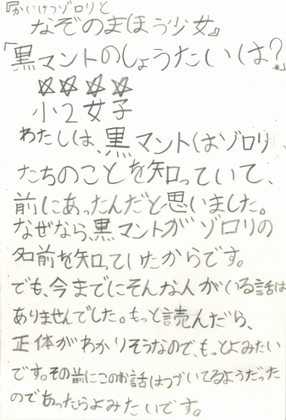 『かいけつゾロリと
なぞのまほう少女』
「黒マントのしょうたいは?」
☆☆☆☆
小2女子
わたしは、黒マントはゾロリ
たちのことを知っていて、
前にあったんだと思いました。
なぜなら、黒マントがゾロリの
名前を知っていたからです。
でも、今までにそんな人がいる話は
ありませんでした。もっと読んだら、
正体がわかりそうなので、もっとよみたい
です。その前にこのお話はつづいてるようだった
のであったらよみたいです。